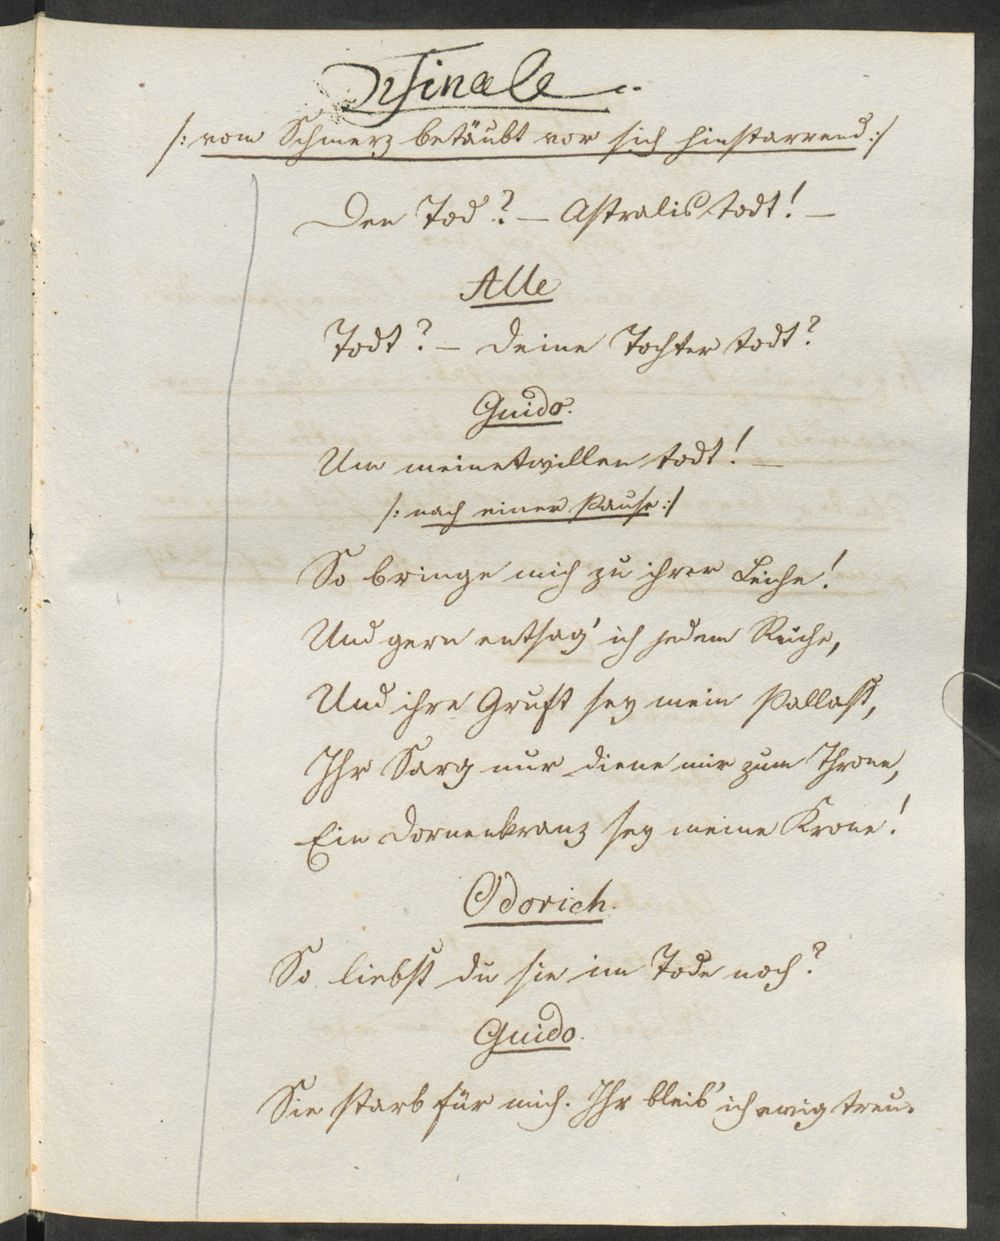 Finale
/: vom Schmerz betäubt vor sich hinstarrend :/
Den Tod? — Astralis todt! —
Alle
Todt? — Deine Tochter todt?
Guido.
Um meinetwillen todt! —
/: nach einer Pause :/
So bringe mich zu ihrer Leiche!
Und gern entsag' ich jedem Reiche,
Und ihre Gruft sey mein Pallast,
Ihr Sarg nur diene mir zum Throne,
Ein Dornenkranz sey meine Krone!
Odorich.
So liebst du sie im Tode noch?
Guido.
Sie starb für mich. Ihr bleib' ich ewig treu.